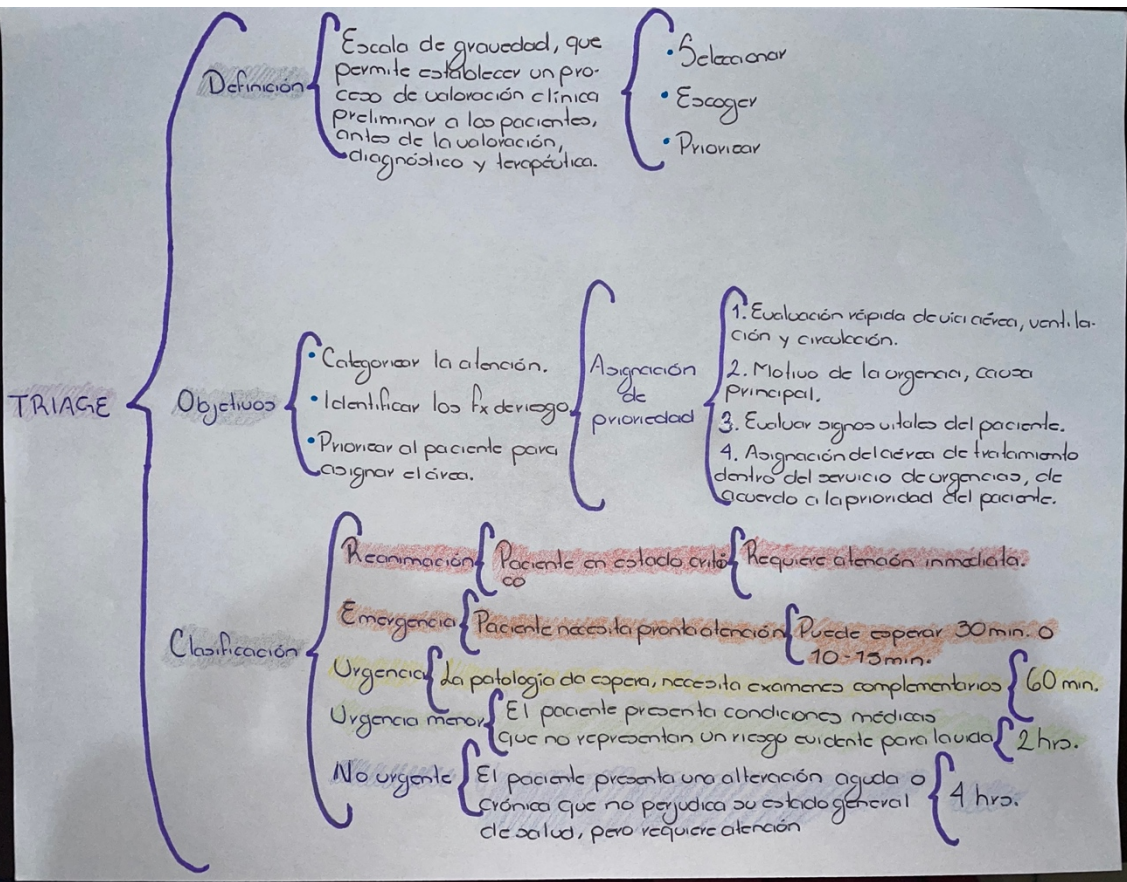 TRIAGE
Definición
Escala de gravedad, que
permite establecer un pro-
ceso de valoración clínica
preliminar a los pacientes,
antes de la valoración,
diagnóstico y terapéutica.
• Seleccionar
• Escoger
• Priorizar
Objetivos
• Categorizar la atención.
• Identificar los fx de riesgo
• Priorizar al paciente para
asignar el área.
Asignación
de
prioridad
1. Evaluación rápida de vía aérea, ventila-
ción y circulación.
2. Motivo de la urgencia, causa
principal.
3. Evaluar signos vitales del paciente.
4. Asignación del aérea de tratamiento
dentro del servicio de urgencias, de
acuerdo a la prioridad del paciente.
Clasificación
Reanimación
Paciente en estado críti
co
Requiere atención inmediata.
Emergencia
Paciente necesita pronta atención
Puede esperar 30 min. o
10-15 min.
Urgencia
La patología da espera, necesita examenes complementarios
60 min.
Urgencia menor
El paciente presenta condiciones médicas
que no representan un riesgo evidente para la vida
2 hrs.
No urgente
El paciente presenta una alteración aguda o
crónica que no perjudica su estado general
de salud, pero requiere atención
4 hrs.